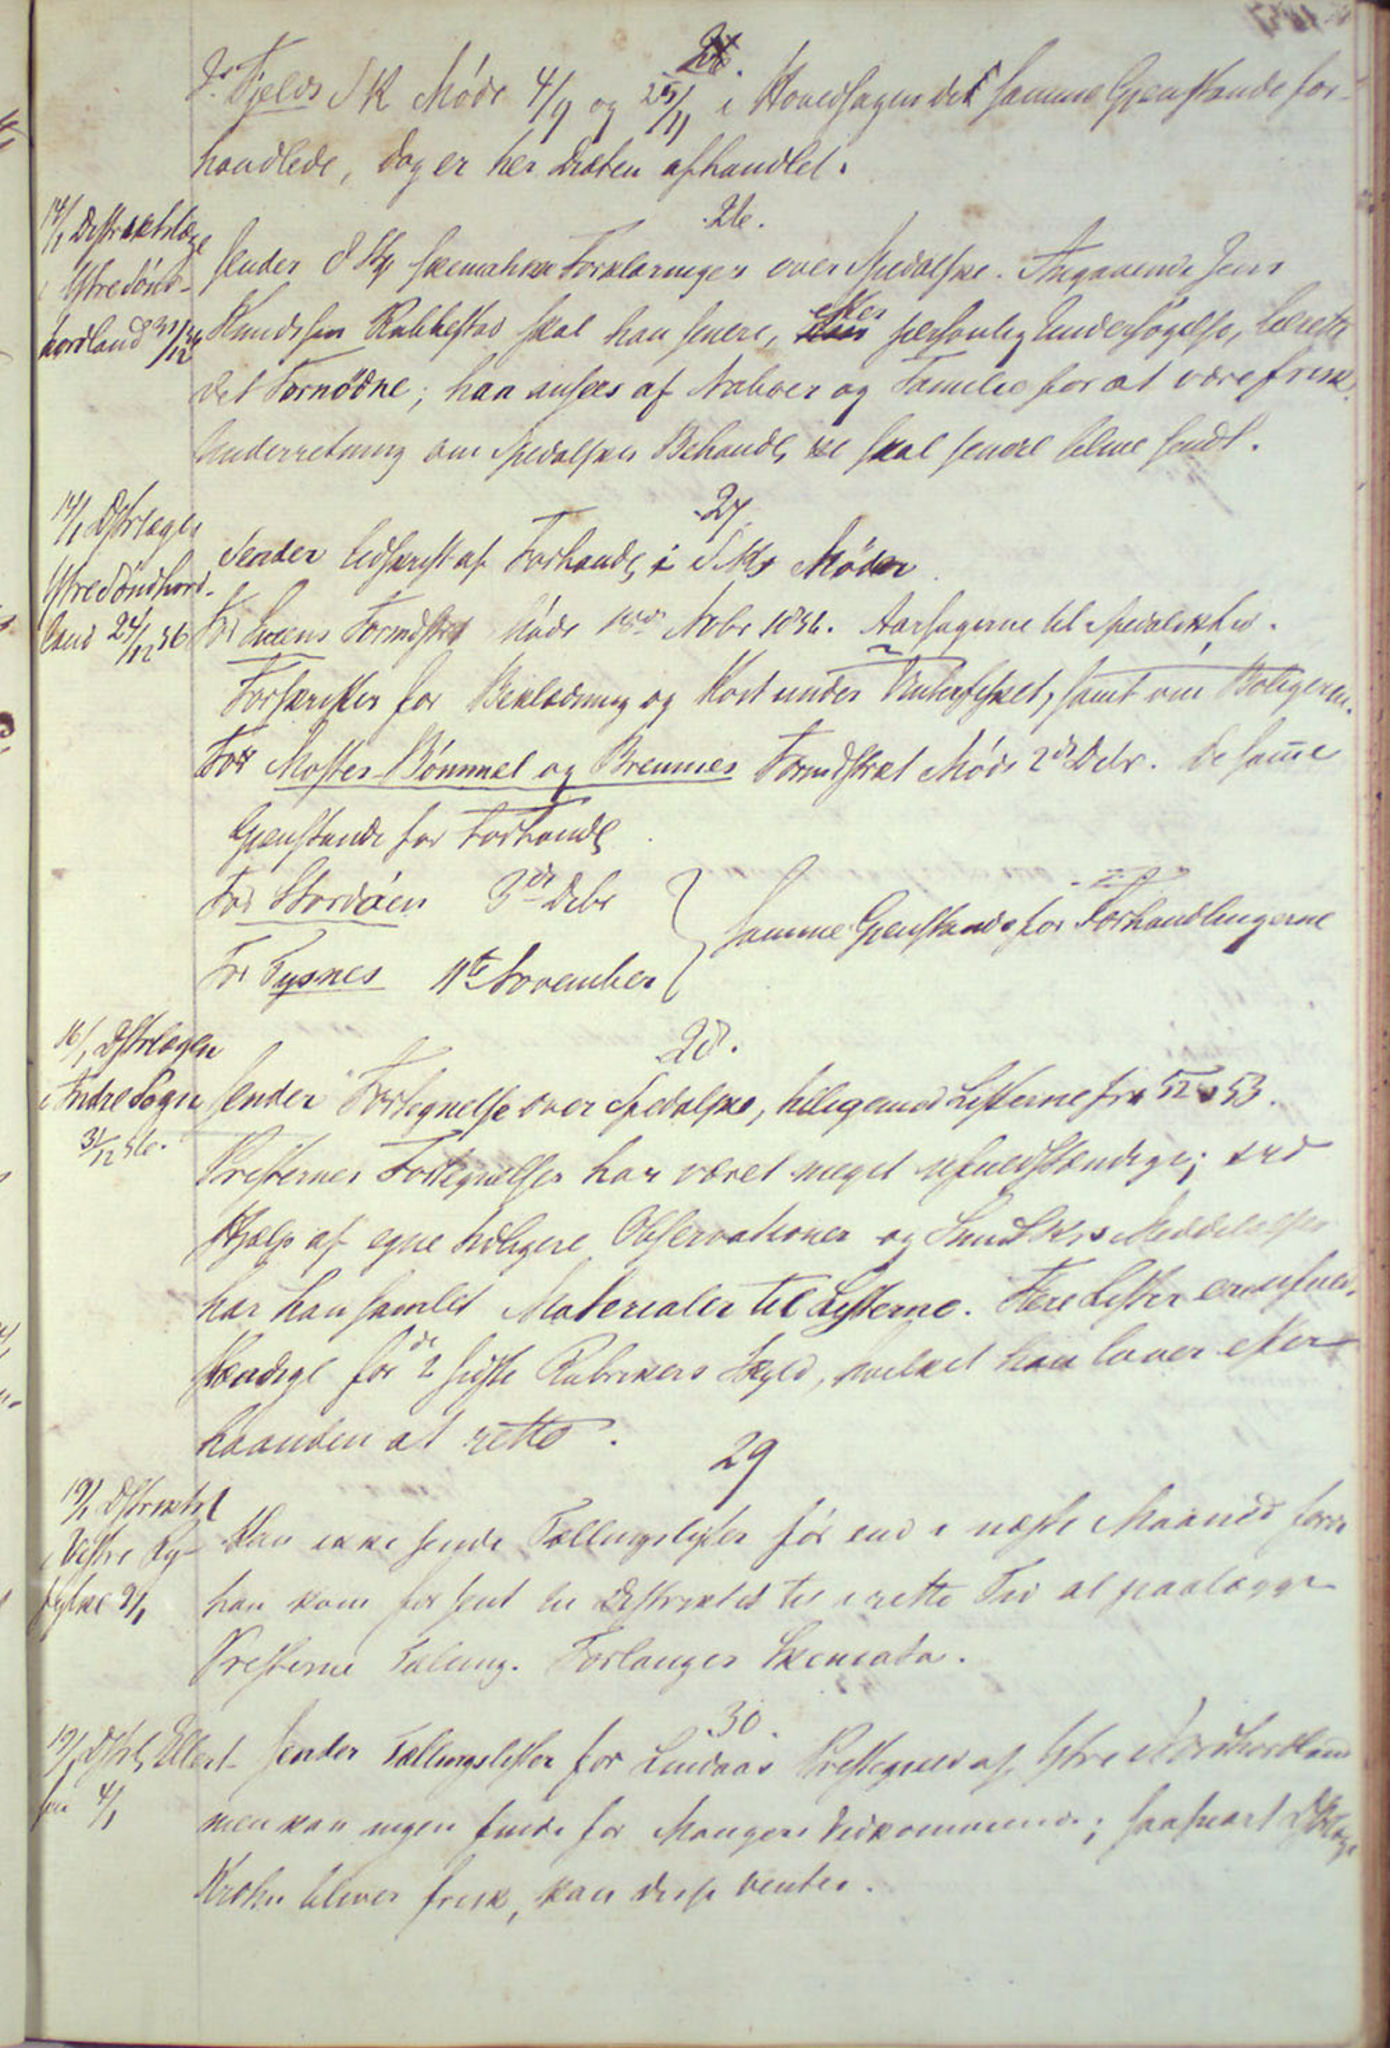 I Fjelds SK Møde 4/9 og 25/11 i Hovedsagen de samme Gjenstande for-
handlede, dog er her Diæten afhandlet.
26.
14/1 Distriktslæge
i Ytre Sønd-
hordland 31/12 56
Sender 8 Stkr skematiske Forklaringer over Spedalske. Angaaende Jens
Knudssen Rabbestad skal han senere, efter personlig Undersøgelse, berette
det Fornødne; han ansees af Naboer og Familie for at være frisk.
Underretning om Spedalskes Behandl. skal senere blive sendt.
27.
14/1 Dstrlægen
Ytre Søndhord-
land 24/12 56
Sender Udskrift af Forhandl. i SKs Møder
For Sveens Formdskb Møde Novbr 1856. Aarsagerne til Spedalskhed.
Forskrifter for Beklædning og Kost under Vinterfisket, samt om Boligerne.
For Moster, Bømmel og Bremnes Formdskab Møde 2de Debr. De samme
Gjenstande for Forhandl.
For Stordøen 3de Debr
Samme Gjenstande for Forhandlingerne
For Tysnes 11te November
28.
16/1 Dstrlægen
i Indre Sogn
31/12 56.
Sender Fortegnelse over Spedalske, tilligemed Listerne fra 52 & 53.
Presternes Fortegnelser har været meget ufuldstændige; ved
Hjælp af egne tidligere Observationer og SundhKs Meddelelser
har han samlet Materialer til Listerne. Flere Lister ere ufuld-
stændige for de 2 sidste Rubrikers Skyld, hvilket han lover efter-
haanden at rette.
29
19/1 Dstriktsl
i Vestre Ry-
fylke 9/1
Kan ikke sende Tællingslister før end i næste Maaned fordi
han kom for sent til Distriktet til i rette Tid at paalægge
Presterne Tælling. Forlanger Skemata.
30.
19/1 Dstrl. Ellert-
sen 4/1
Sender Tællingslister for Lindaas Prestegjeld af Ytre Nordhordland
men kan ingen sende for Mangers Vedkommende; saasnart Dstrlæge
Krohn bliver frisk, kan disse ventes.